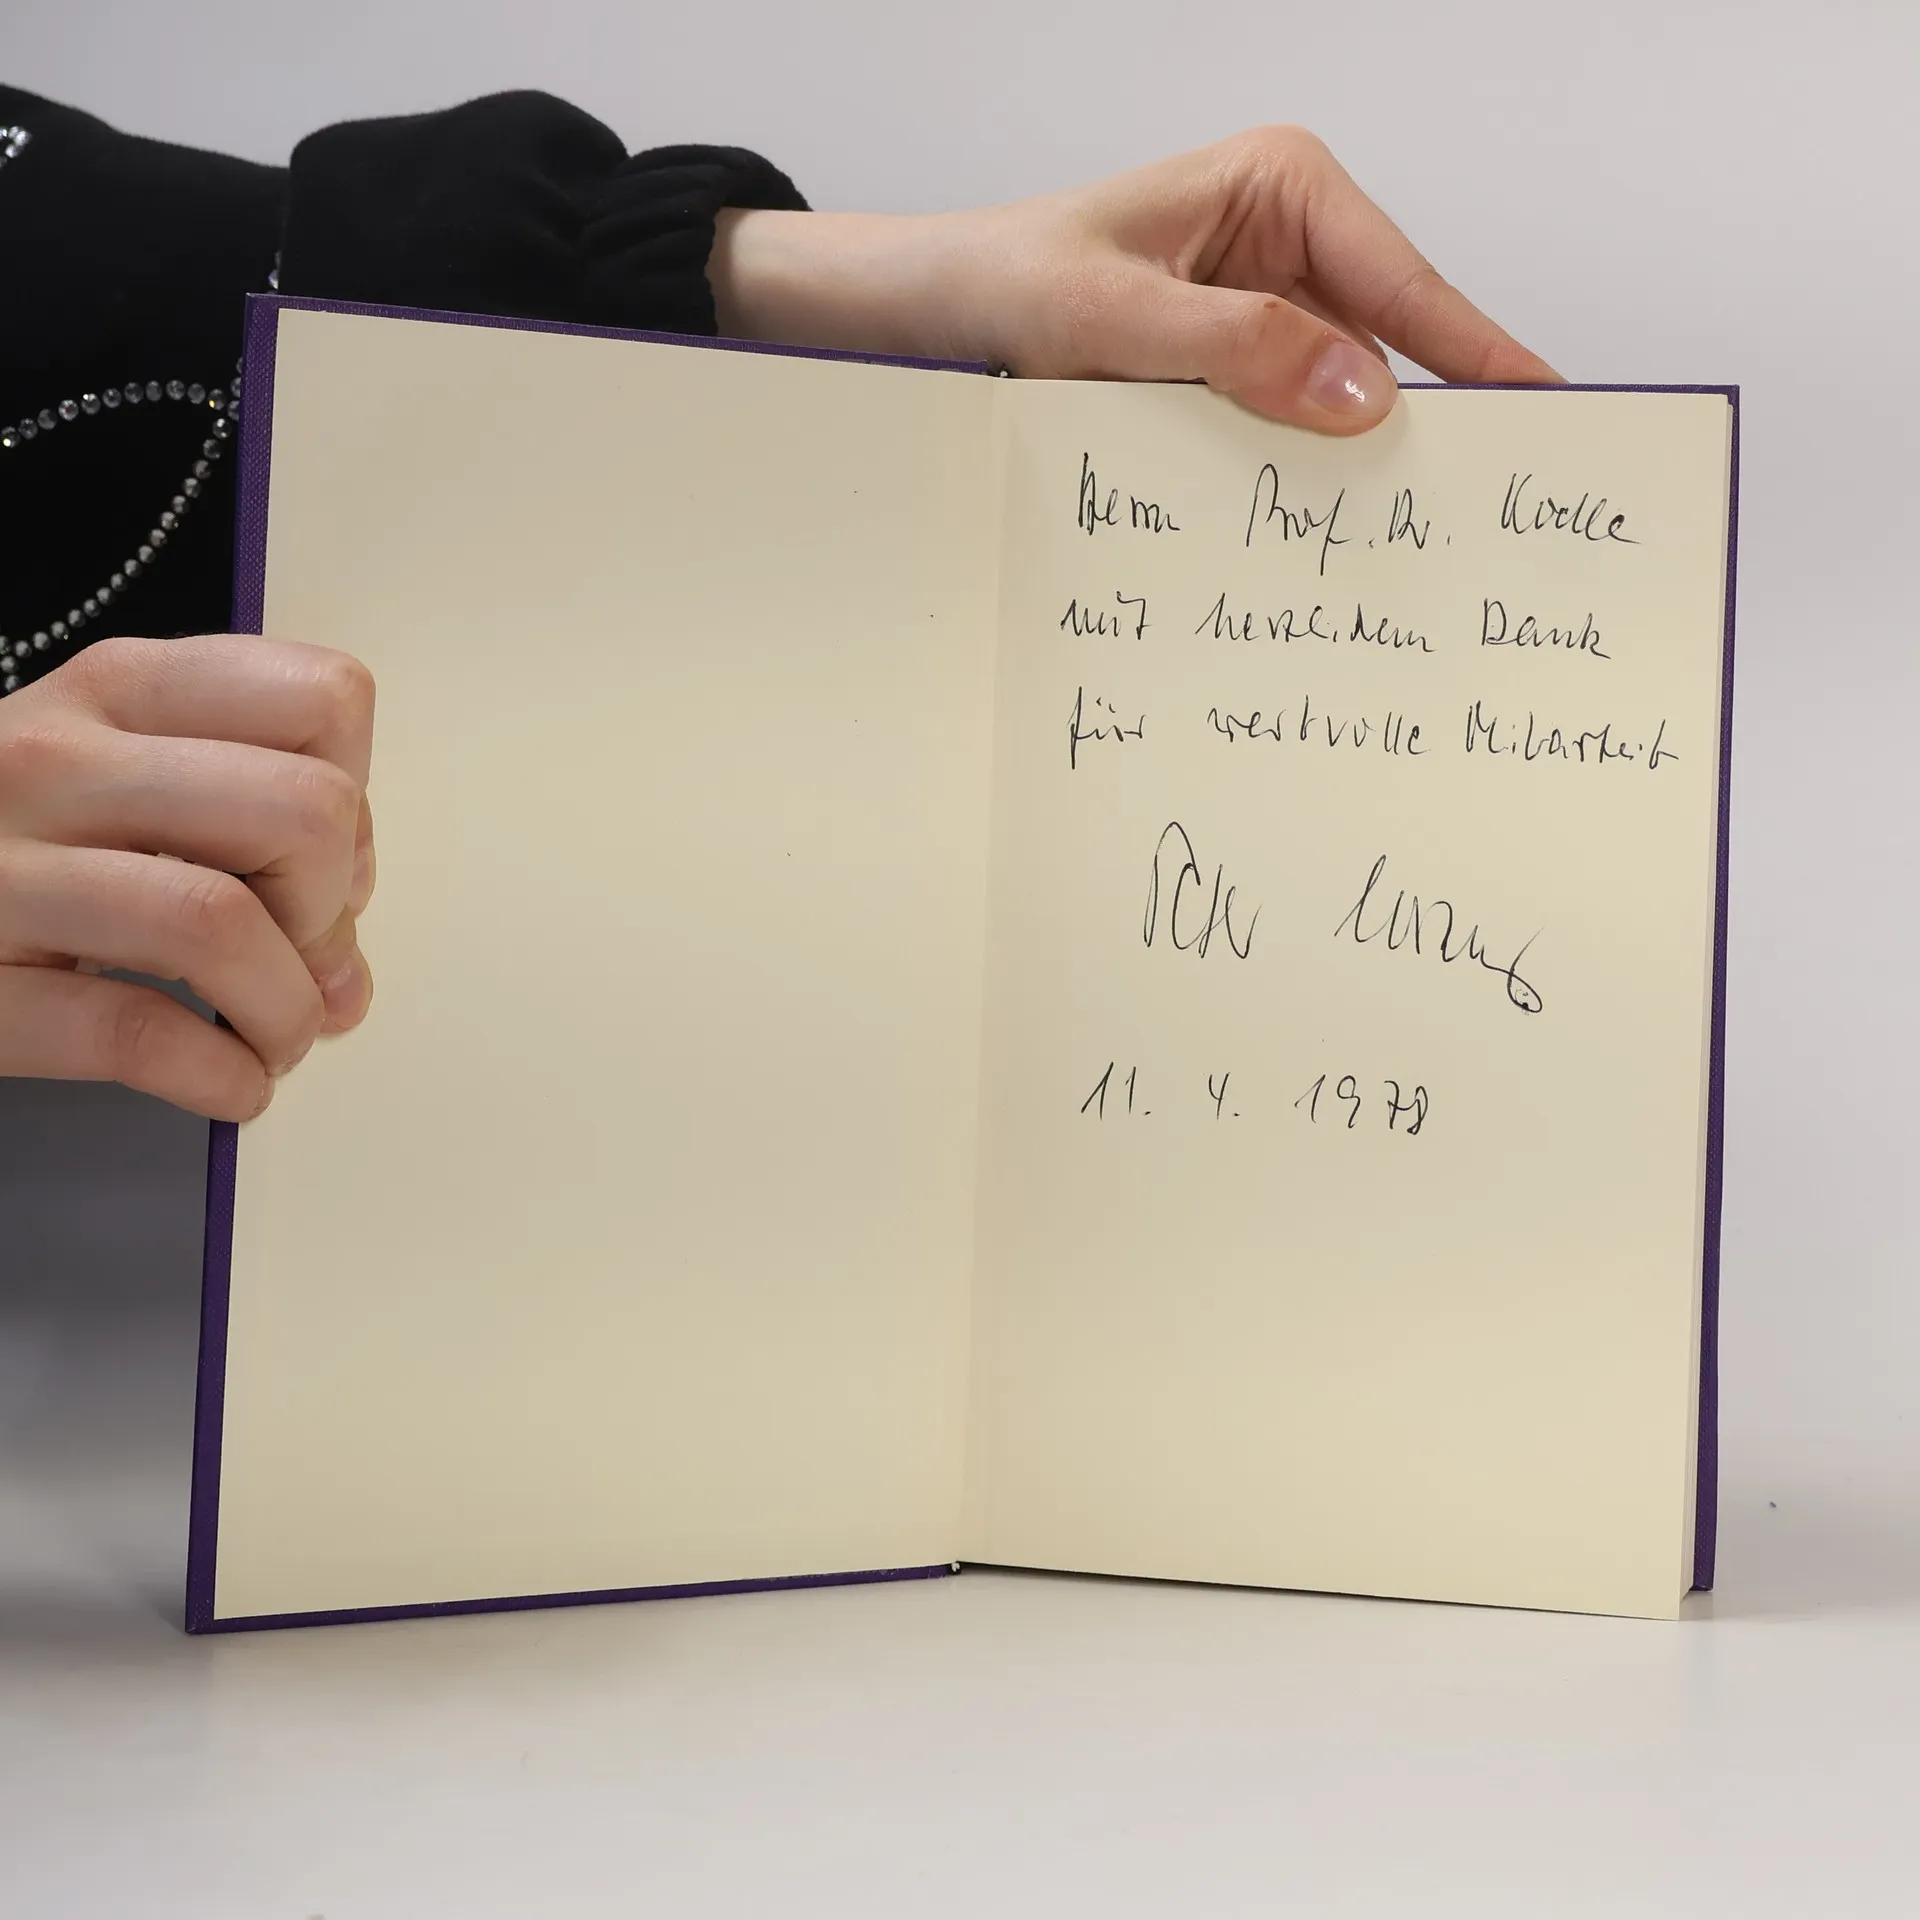 Herrn Prof. Dr. Kodlle
mit herzlichem Dank
für wertvolle Mitarbeit
Peter Lorenz
11. 4. 1978